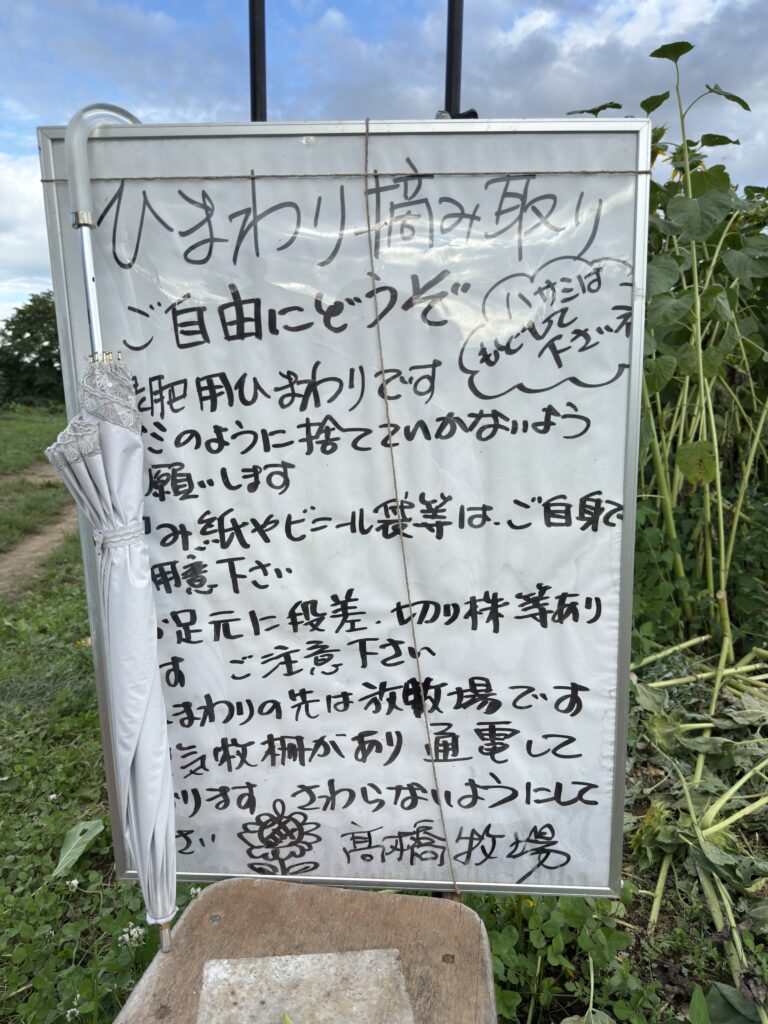 ひまわり摘み取り
ご自由にどうぞ
ハサミは
もどして
下さいネ
肥用ひまわりです
ミのように捨てていかないよう
願いします
み紙やビニール袋等は、ご自身で
用意下さい
足元に段差、切り株等あり
す ご注意下さい
まわりの先は放牧場です
気牧柵があり通電して
ります さわらないようにして
さい 高橋牧場